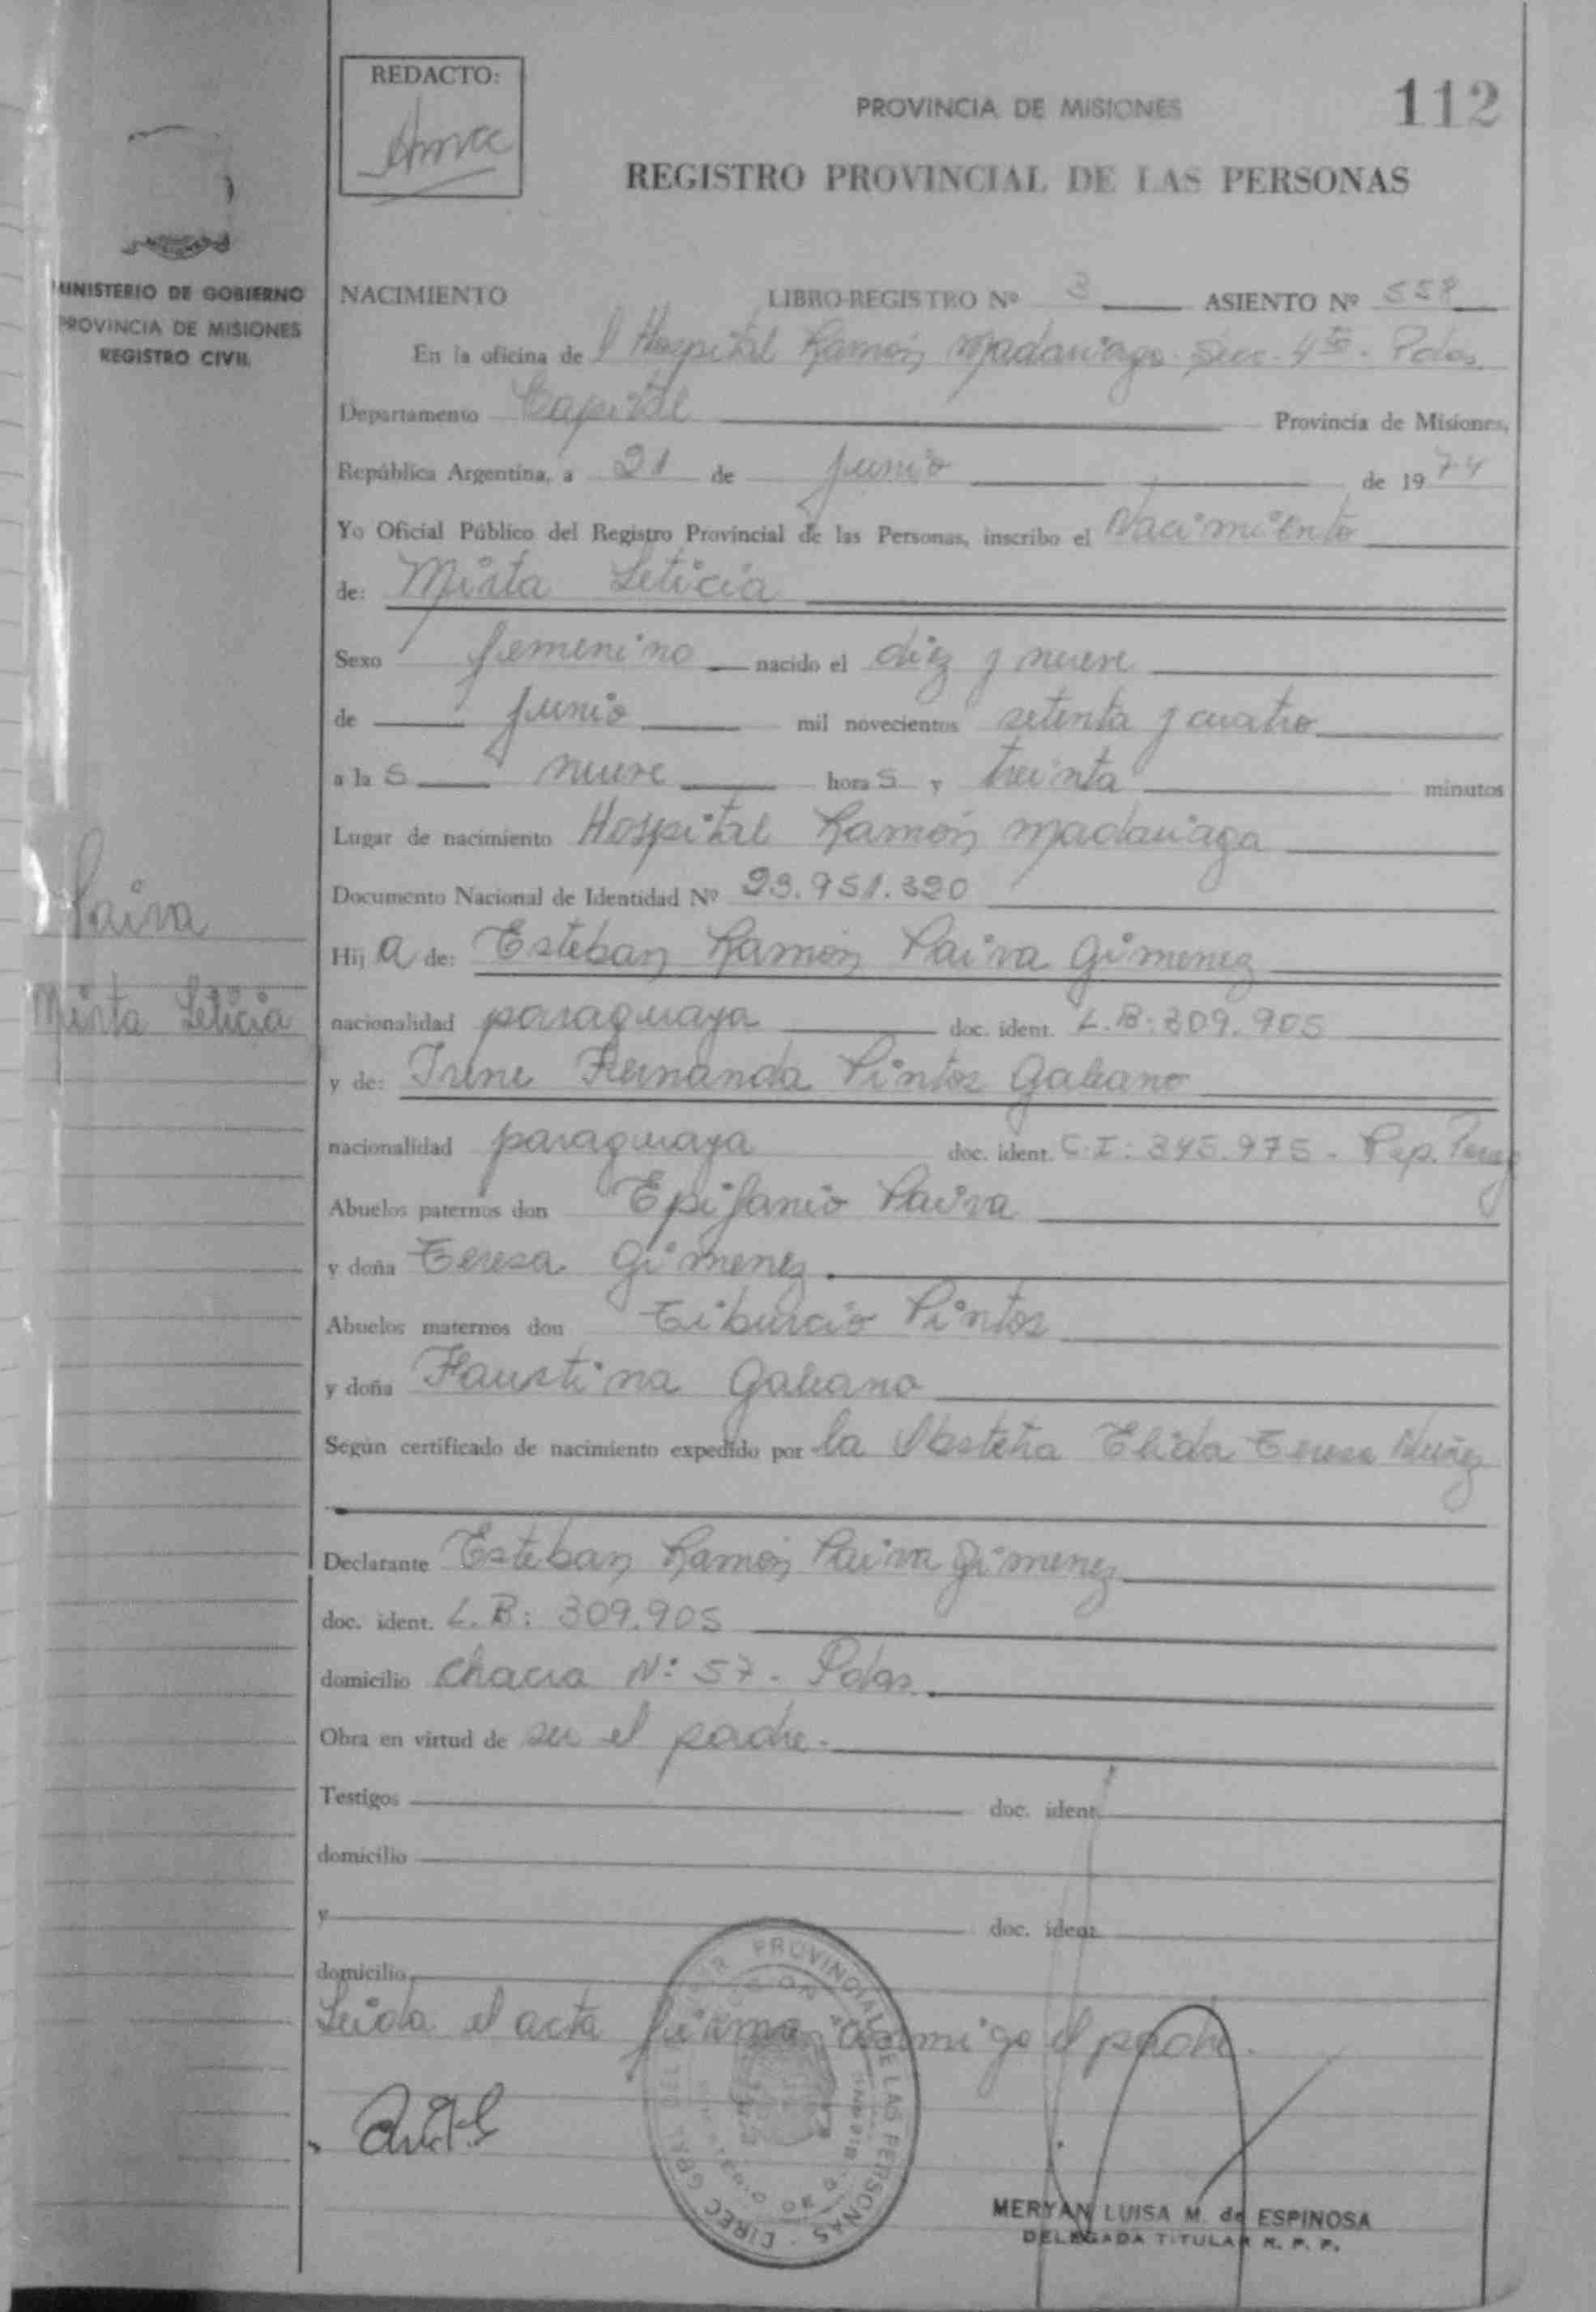 REDACTO:
PROVINCIA DE MISIONES
112
REGISTRO PROVINCIAL DE LAS PERSONAS
MINISTERIO DE GOBIERNO
PROVINCIA DE MISIONES
REGISTRO CIVIL
NACIMIENTO LIBRO-REGISTRO Nº 3 ASIENTO Nº 558
En la oficina de l Hospital Ramón Madariaga. Secc. 4ta. Pdas.
Departamento Capital Provincia de Misiones,
República Argentina, a 21 de junio de 1974
Yo Oficial Público del Registro Provincial de las Personas, inscribo el Nacimiento
de: Mirta Leticia
Sexo femenino nacido el diez y nueve
de junio mil novecientos setenta y cuatro
a la s nueve hora s y treinta minutos
Lugar de nacimiento Hospital Ramón Madariaga
Documento Nacional de Identidad Nº 23.951.320
Paiva
Mirta Leticia
Hij a de: Esteban Ramón Paiva Gimenez
nacionalidad paraguaya doc. ident. L.B: 309.905
y de: Irene Fernanda Pintos Galeano
nacionalidad paraguaya doc. ident. C.I: 345.975 - Rep. Parag
Abuelos paternos don Epifanio Paiva
y doña Teresa Gimenez
Abuelos maternos don Tiburcio Pintos
y doña Faustina Galeano
Según certificado de nacimiento expedido por la Obstetra Elida Teresa Nuñez
Declarante Esteban Ramón Paiva Gimenez
doc. ident. L.B: 309.905
domicilio chacra N: 57 - Pdas.
Obra en virtud de ser el padre.
Testigos doc. ident.
domicilio
y doc. ident.
domicilio
Leida el acta firma conmigo el padre.
DIREC. GRAL. DEL PROVINCIAL DE LAS PERSONAS
MERYAN LUISA M. de ESPINOSA
DELEGADA TITULAR R. P. P.